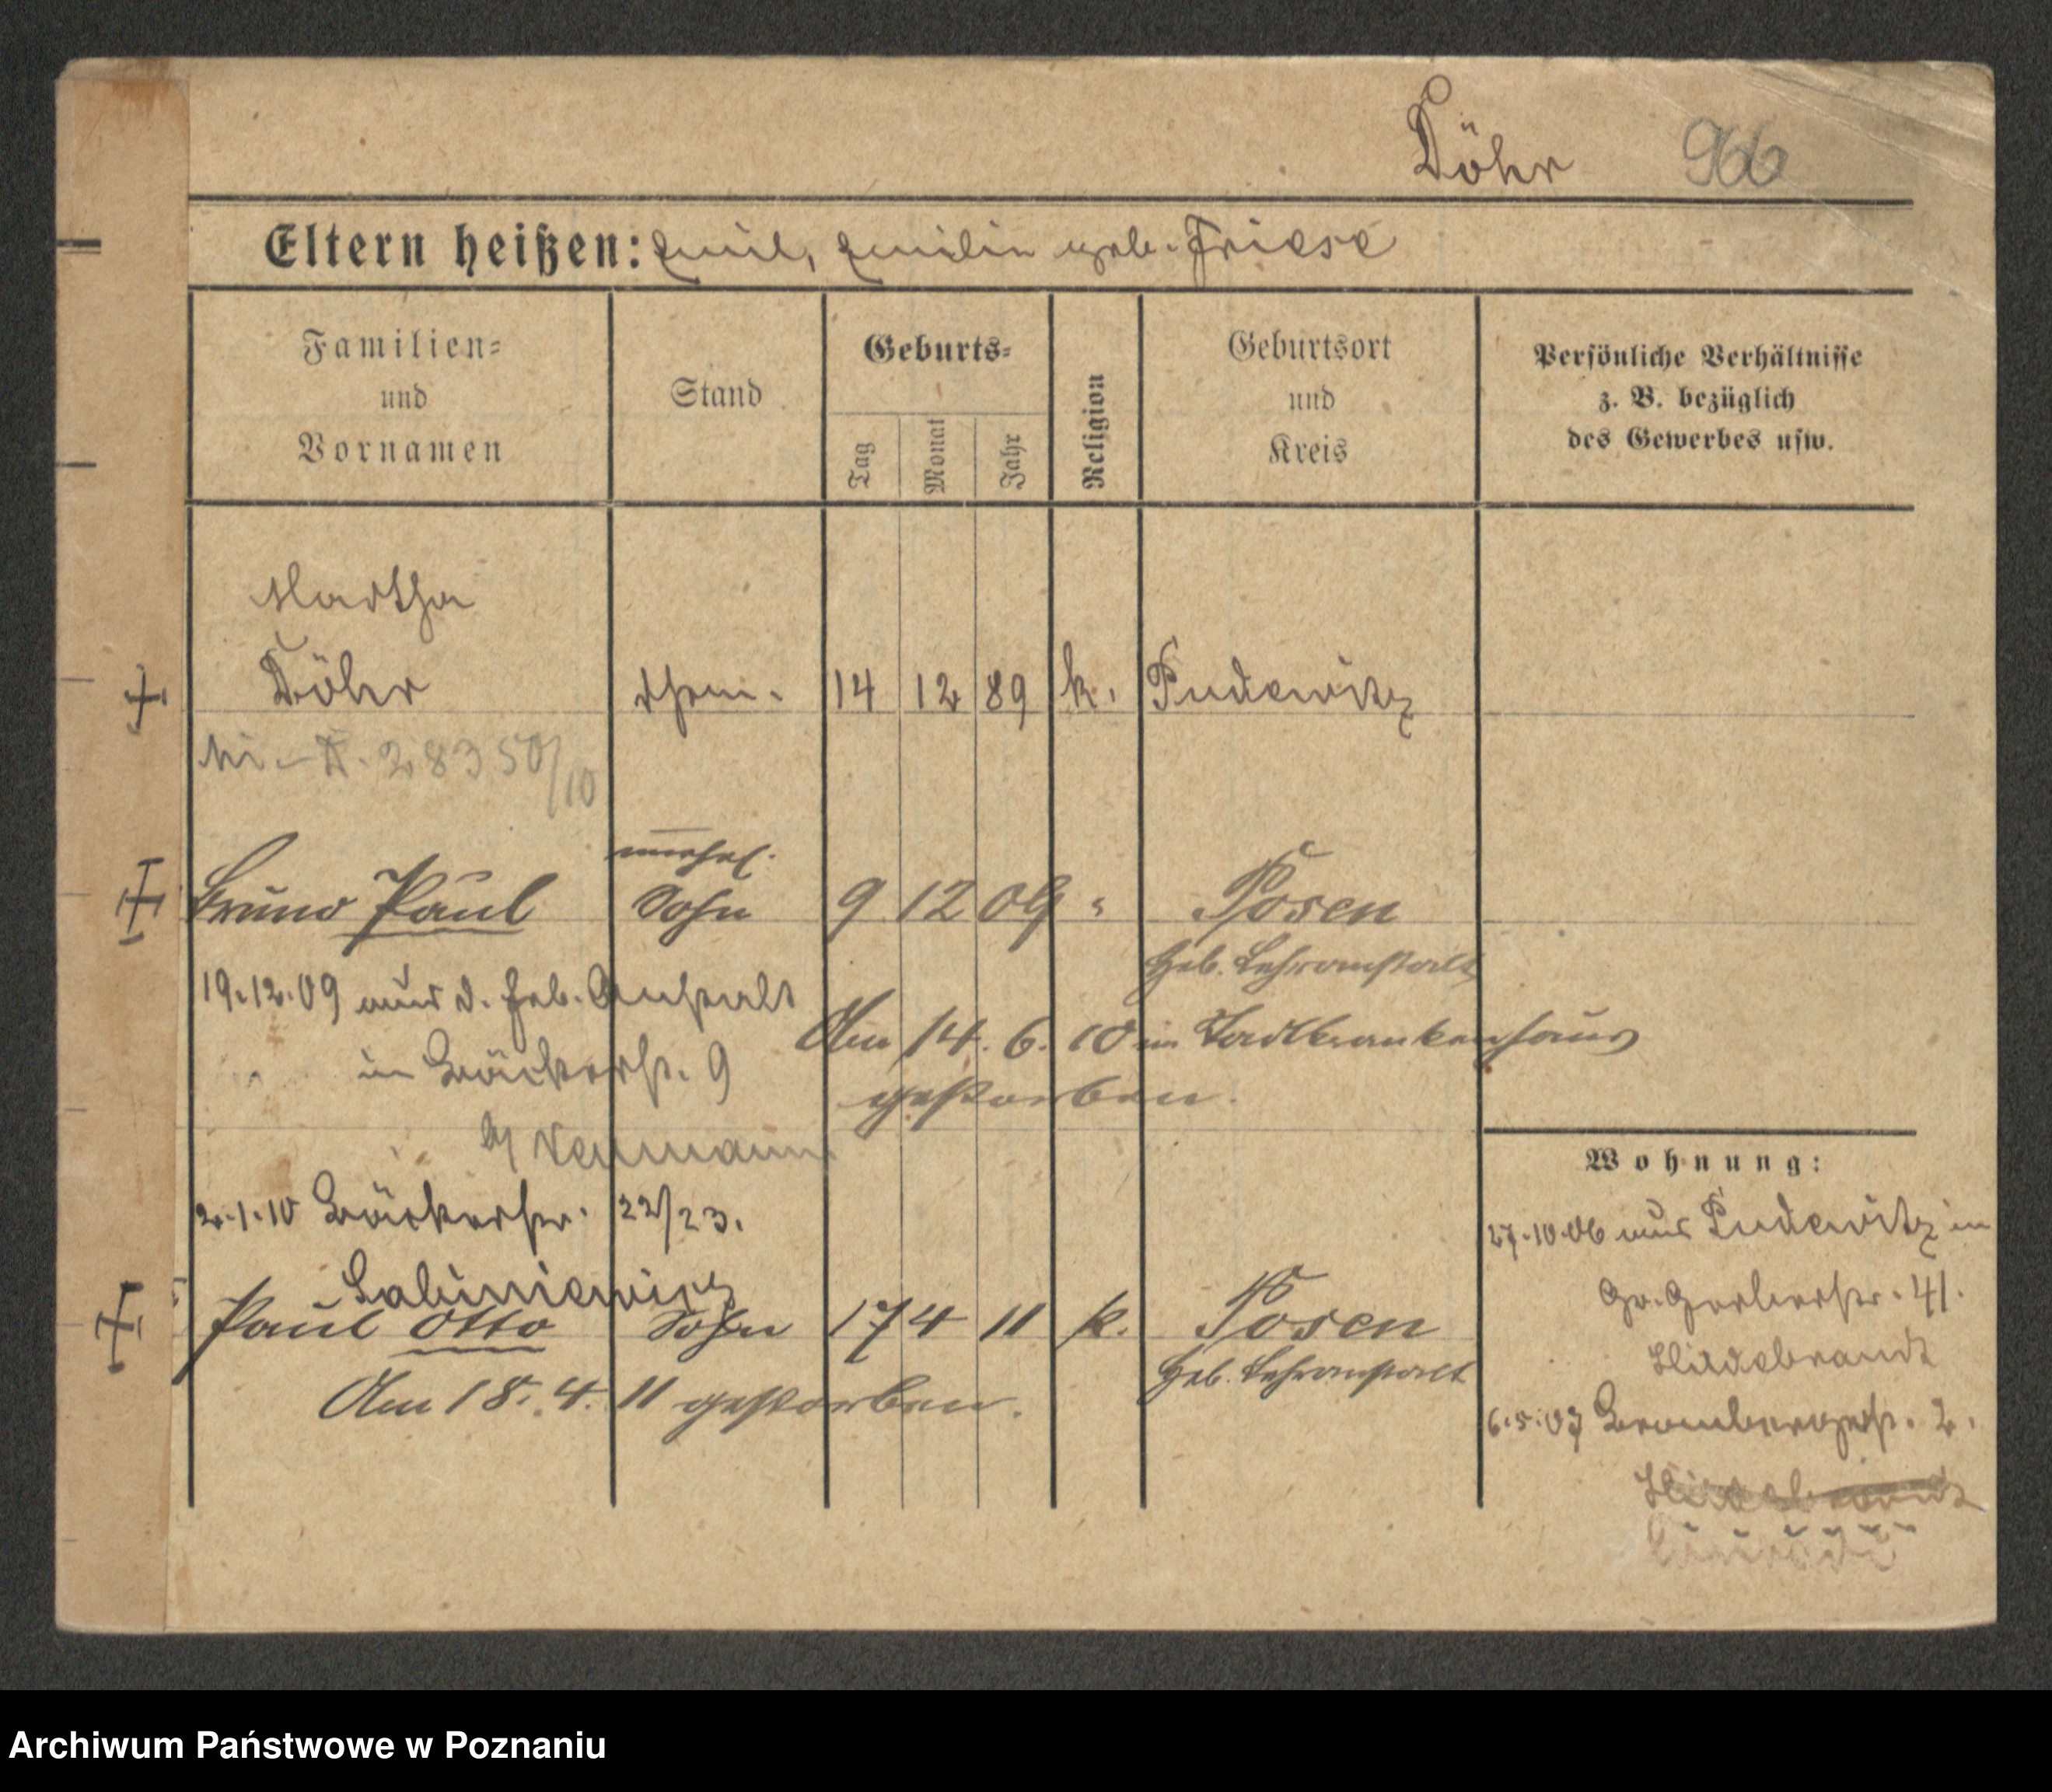 Döhr 966
Eltern heißen: Emil, Emilie geb. Friese
Familien=
und
Vornamen
Stand
Geburts=
Tag
Monat
Jahr
Religion
Geburtsort
und
Kreis
Persönliche Verhältnisse
z. B. bezüglich
des Gewerbes usw.
Martha
Döhr 14 12 89 k. Pudewitz
28350/10
unehel.
Bruno Paul Sohn 9 12 09 " Posen
Geb. Lehranstalt
19.12.09 aus d. Geb. Anstalt
in Bäckerstr. 9
Am 14. 6. 10 im Stadtkrankenhaus
gestorben.
b/ Neumann
2.1.10 Bäckerstr. 22/23.
Labiniewicz
Paul Otto Sohn 17 4 11 k. Posen
Geb. Lehranstalt
Am 18. 4. 11 gestorben.
Wohnung:
27.10.06 aus Pudewitz in
Gr. Gerberstr. 41.
Hildebrandt
6.5.07 Brombergerstr. 2.
Hildebrandt
Archiwum Państwowe w Poznaniu